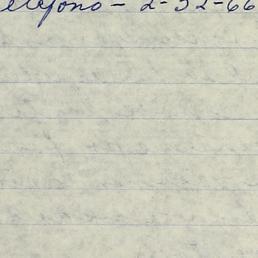 eléfono - 2-52-66